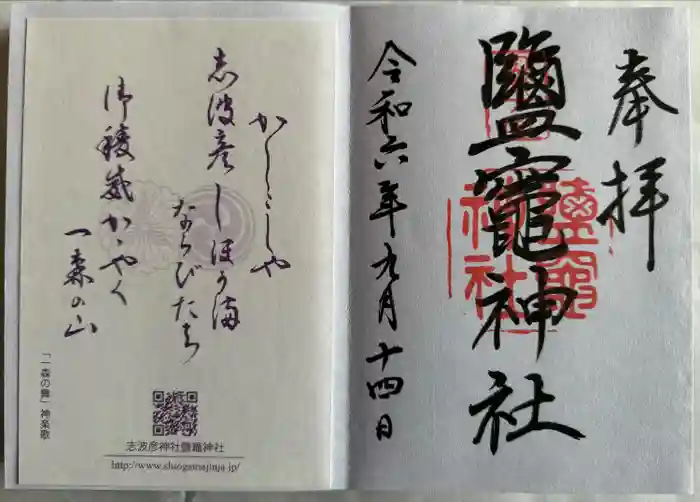 奉拝
鹽竈神社
令和六年九月十四日
かしこしや
志波彦しほがま
ならびたち
御稜威かゞやく
一森の山
「一森の舞」神楽歌
志波彦神社鹽竈神社
http://www.shiogamajinja.jp/